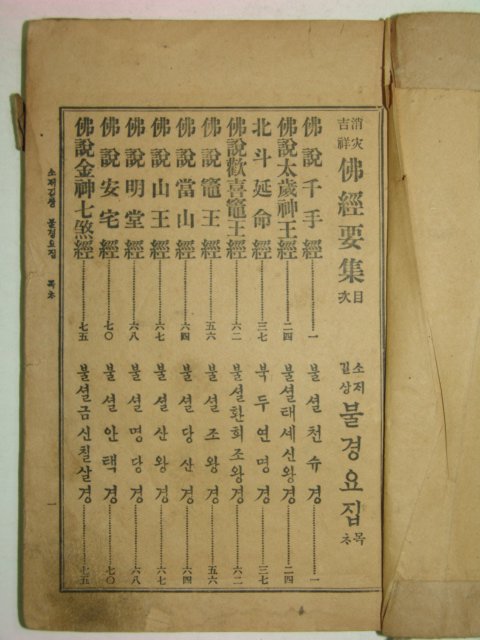 消灾吉祥 佛經要集 目次
소ᄌᆡ길상 불경요집 목ᄎᆞ
佛說千手經……一 불셜쳔슈경……一
佛說太歲神王經……二四 불셜태세신왕경……二四
北斗延命經……三七 북두연명경……三七
佛說歡喜竈王經……六二 불셜환희조왕경……六二
佛說竈王經……五六 불셜조왕경……五六
佛說當山經……六四 불셜당산경……六四
佛說山王經……六七 불셜산왕경……六七
佛說明堂經……六八 불셜명당경……六八
佛說安宅經……七〇 불셜안택경……七〇
佛說金神七煞經……七五 불셜금신칠살경……七五
소ᄌᆡ길상 불경요집 목ᄎᆞ 一